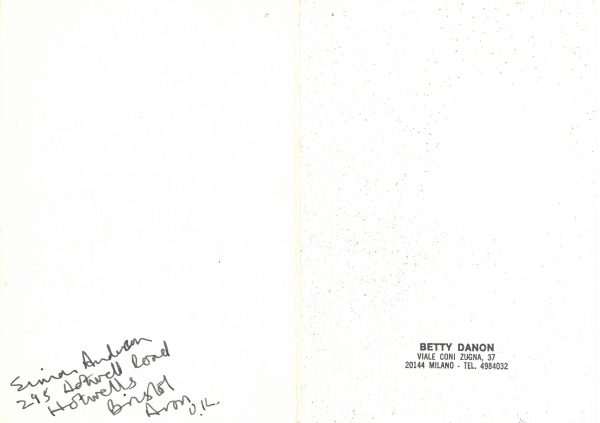 Simon Anderson
295 Hotwell Road
Hotwells
Bristol
Avon, U.K.
BETTY DANON
VIALE CONI ZUGNA, 37
20144 MILANO - TEL. 4984032